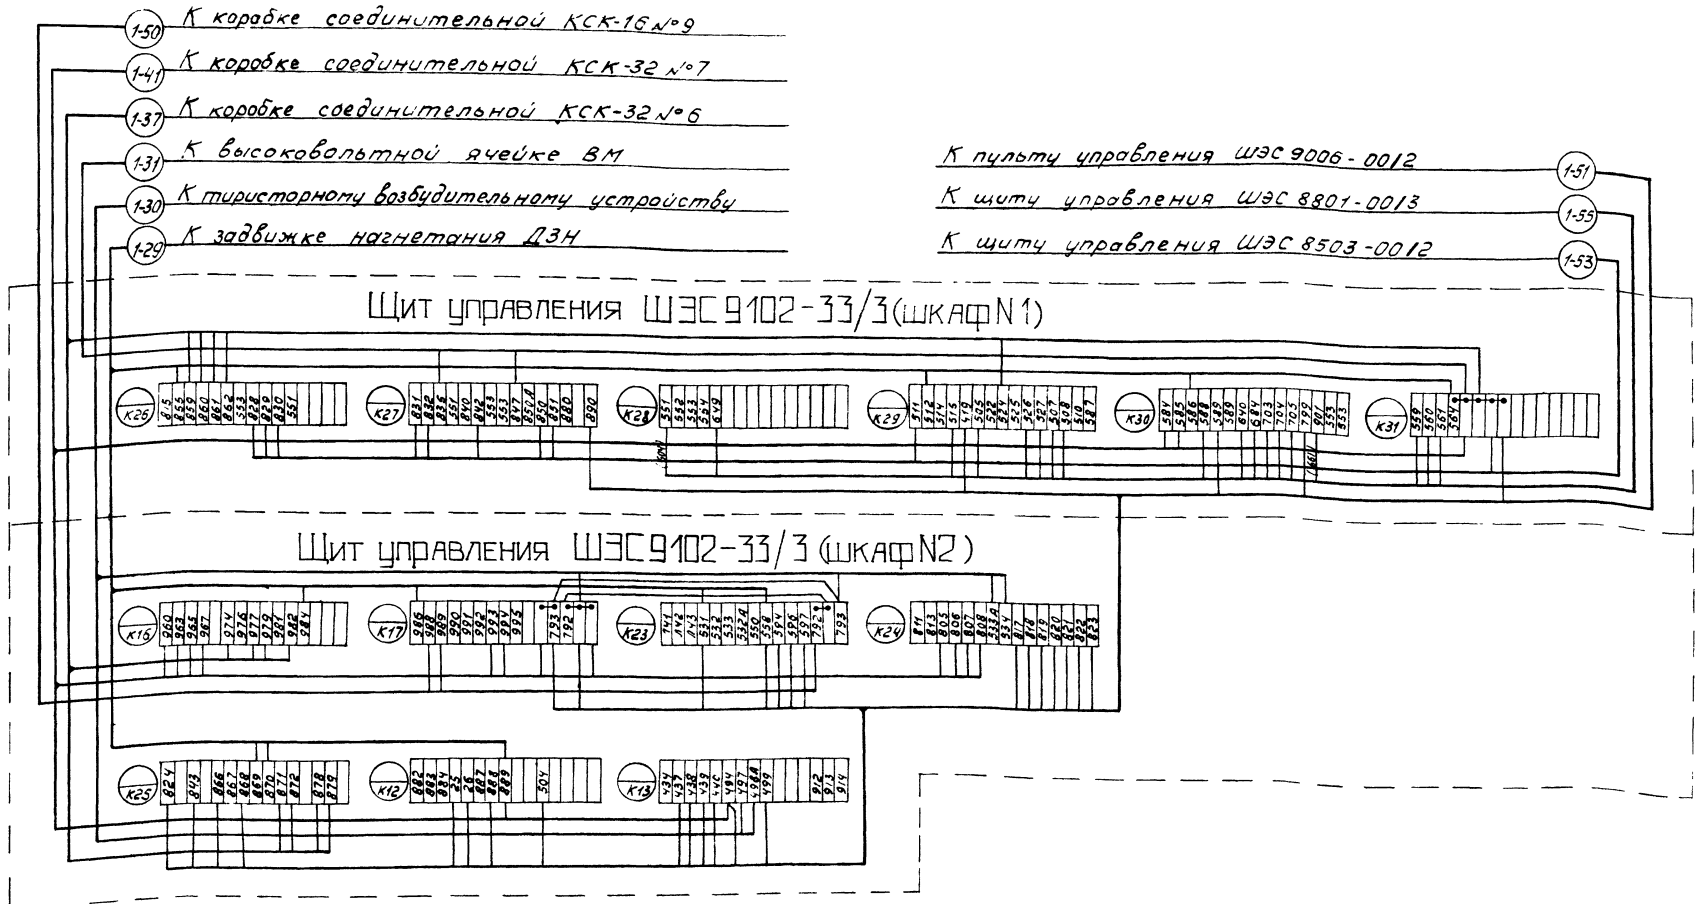 1-50 К коробке соединительной КСК-16 №9
1-41 К коробке соединительной КСК-32 №7
1-37 К коробке соединительной КСК-32 №6
1-31 К высоковольтной ячейке ВМ
1-30 К тиристорному возбудительному устройству
1-29 К задвижке нагнетания ДЗН
К пульту управления ШЭС 9006-0012 1-51
К щиту управления ШЭС 8801-0013 1-55
К щиту управления ШЭС 8503-0012 1-53
Щит управления ШЭС9102-33/3(шкаф N1)
К26 815 855 859 860 861 862 553 828 829 830 551
К27 831 832 836 551 840 842 553 553 847 851А 850 851 880 890
К28 551 552 553 554 649
504
К29 511 512 514 515 519 505 522 524 525 526 527 507 508 510 587
К30 584 585 586 588 589 589 640 684 703 704 705 799 901 553 553
К31 559 560 561 564
Щит управления ШЭС9102-33/3 (шкаф N2)
К16 960 963 965 967 974 976 977 979 981 982 984
К17 986 988 989 990 991 992 993 994 995 793 792
К23 141 142 143 531 532 533 532А 550 558 594 596 597 792 793
К24 811 813 805 806 807 808 533А 534 817 818 819 820 821 822 823
К25 824 843 866 867 868 869 870 871 872 878 879
К12 882 883 884 25 26 887 888 889 504
К13 434 437 438 439 440 494 497 498А 499 912 913 914